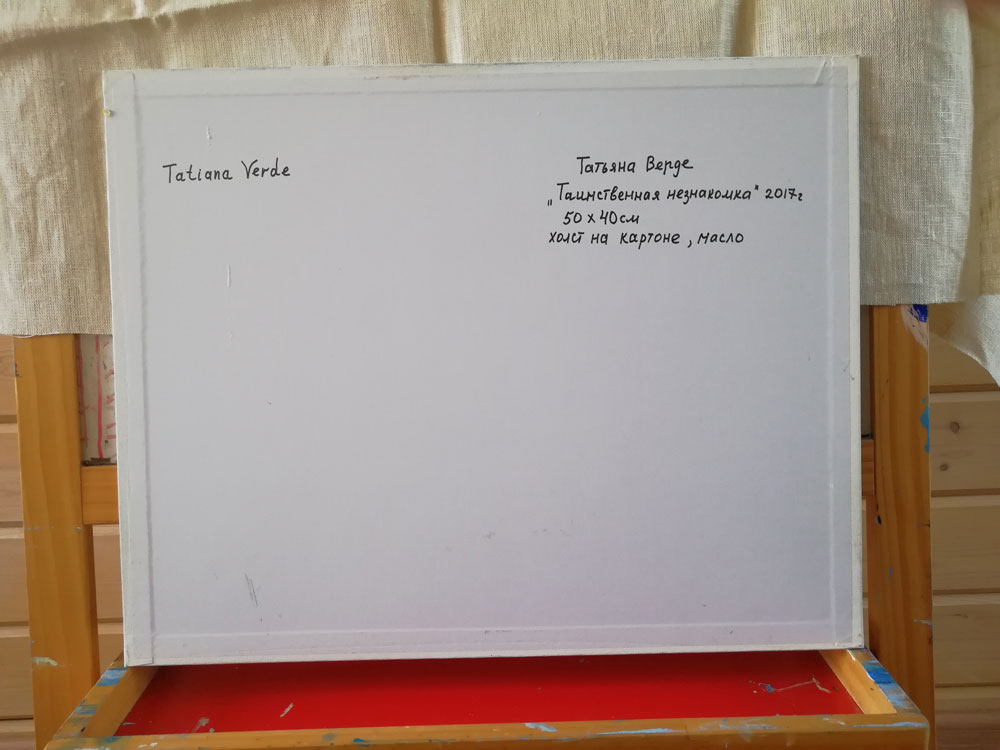 Tatiana Verde
Татьяна Верде
„Таинственная незнакомка" 2017г
50 x 40 см
холст на картоне, масло